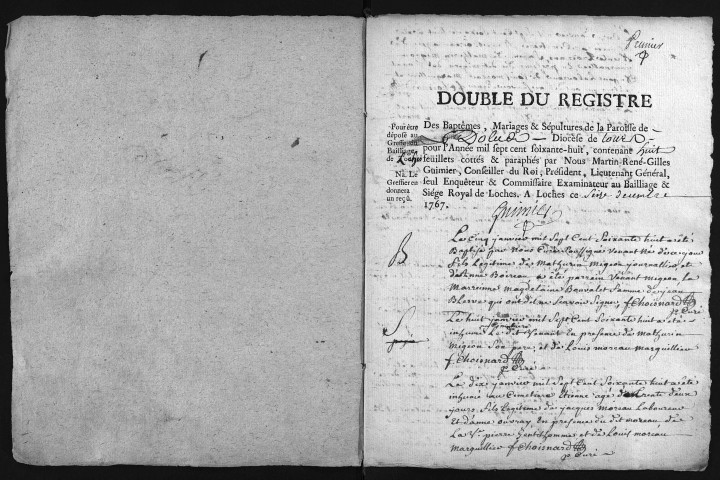 Premier
DOUBLE DU REGISTRE
Pour être
déposé au
Greffe du
Bailliage
de Loches
Na. Le
Greffier en
donnera
un reçu.
Des Baptêmes, Mariages & Sépultures de la Paroisse de
Dolus Diocèse de tours
pour l'Année mil sept cent soixante-huit, contenant huit
feuillets cottés & paraphés par Nous Martin-René-Gilles
Guimier, Conseiller du Roi, Président, Lieutenant Général,
seul Enquêteur & Commissaire Examinateur au Bailliage &
Siége Royal de Loches. A Loches ce Seize decembre
1767.
Guimier
B
Le Cinq janvier mil Sept Cent Soixante huit a été
Baptisé par Nous Curé Soussigné venant né d'hier jour
fils Legitime de Mathurin migeon journallier et
Boireau a été parrain venant migeon la
Marreinne Magdelaine Bauvalet femme de jean
qui ont dit ne Scavoir Signer fChoisnard
p. Curé
S
Le huit janvier mil Sept Cent Soixante huit a été
inhumé Le dit Venant En presence de Mathurin
Migeon Son pere, et de Louis moreau Marguillier
fChoisnard
p. Curé
Le dix janvier mil Sept Cent Soixante huit a été
inhumé au Cimetiere Etienne agé de trente deux
jours fils Legitime de jacques Moreau Laboureur
Et d'anne ouvray En presence du dit moreau de
La Ve. pierre gentilhomme et de Louis moreau
marguillier fChoisnard
p. Curé